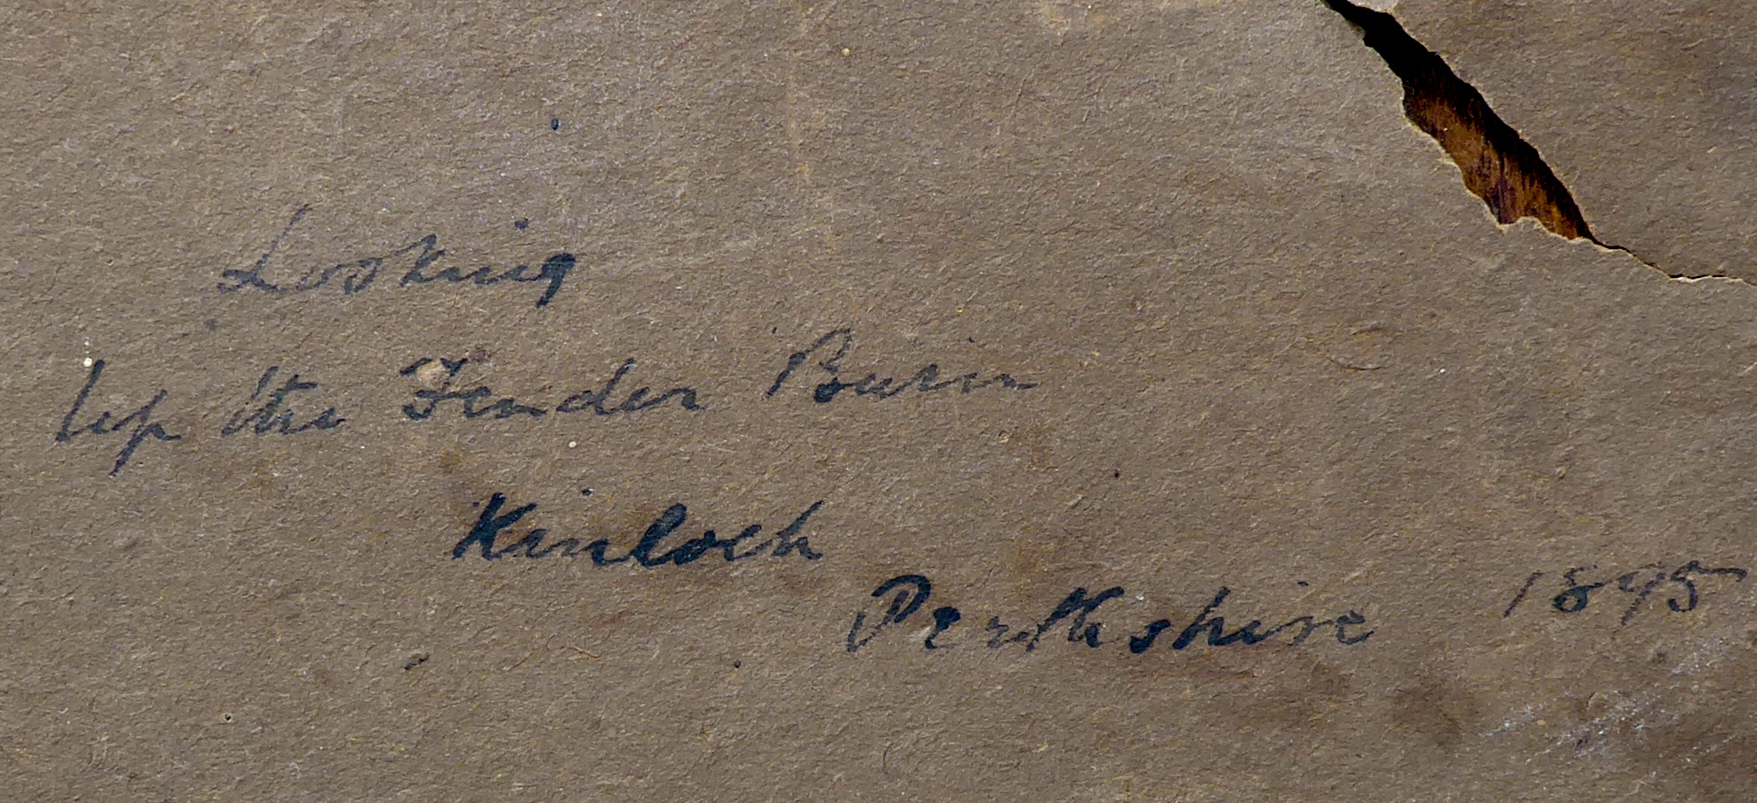 Looking
Up the Fender Burn
Kinloch
Perthshire 1895